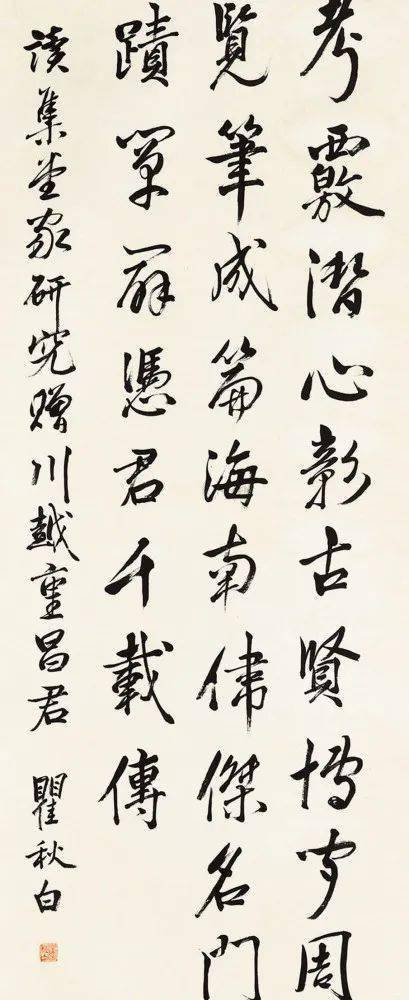 考覈潛心彰古賢博聞周
覽筆成篇海南偉傑名門
蹟闡闢憑君千載傳
讀集堂家研究贈川越重昌君 瞿秋白